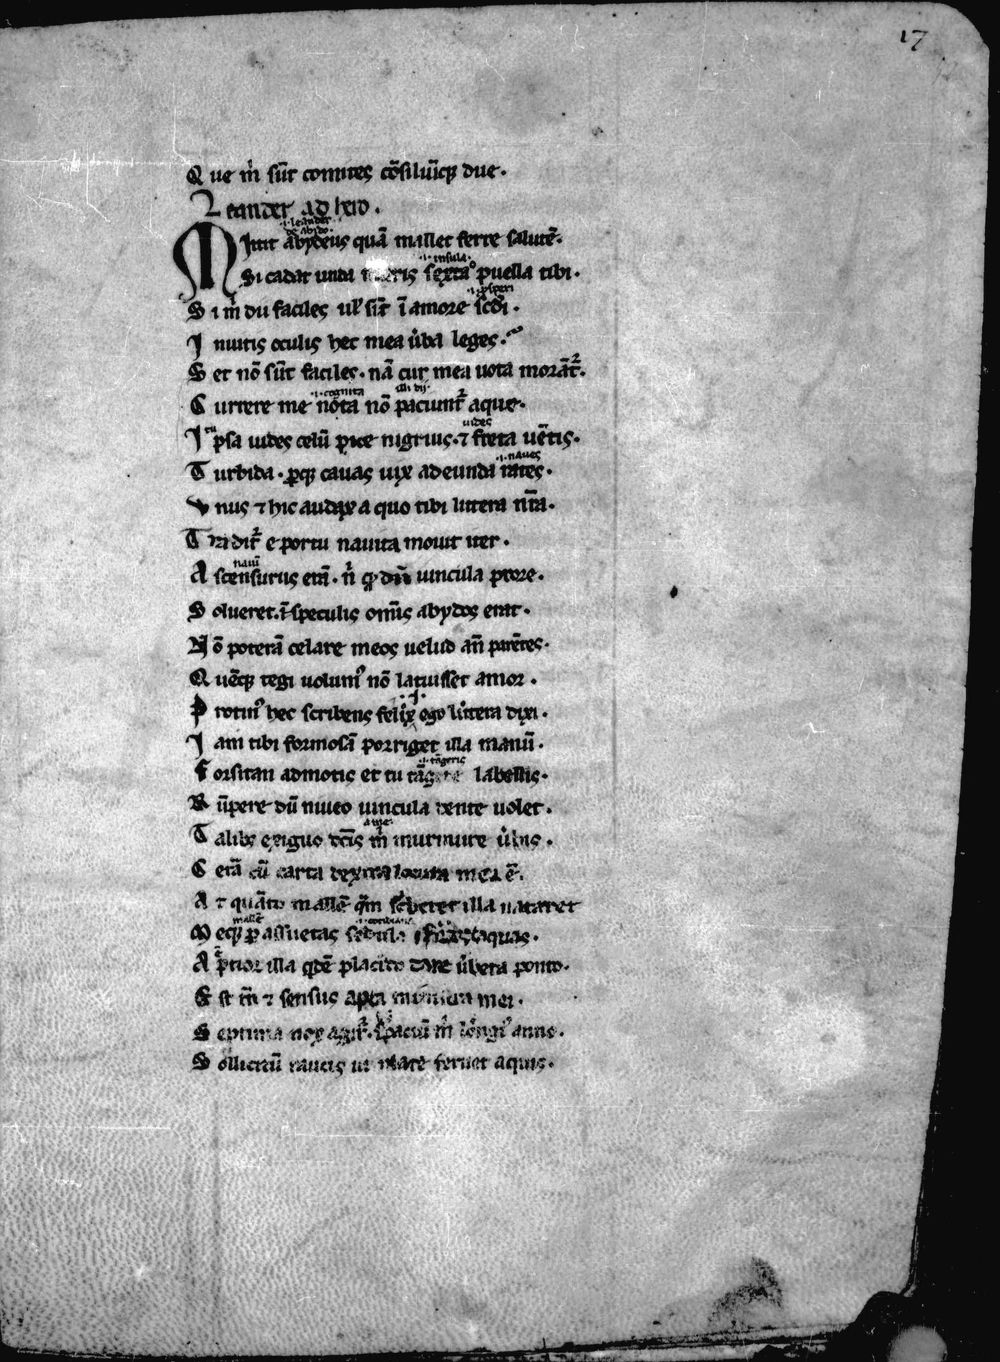 17
Que m̃ sũt comites cõsiliũq; due.
Leander ad hero.
.i. leander
de abido.
Mittit abydeus quã mallet ferre salutẽ.
.i. insula.
Si cadat unda maris sexta puella tibi.
.i. prosperi
Si m̃ du faciles ul' sũt ĩ amore scd̃i.
Inuitis oculis hec mea ũba leges.
Set nõ sũt faciles. nã cur mea uota morãt᷑.
.i. cognita illi dij
Currere me nota nõ paciunt᷑ aque.
tu uides
Ipsa uides celũ pice nigrius. ⁊ freta uẽtis.
.i. naues
Turbida. ꝑq; cauas uix adeunda rates.
Vnus ⁊ hic audax a quo tibi littera nr̃a.
Tradit᷑ e portu nauita mouit iter.
nauĩ
Ascensurus erã. ñ ꝙ dũ uincula prore.
Solueret. ĩ speculis om̃is abydos erat.
Nõ poterã celare meos uelud añ parẽtes.
Quẽq; tegi uolumꝰ nõ latuisset amor.
Protinꝰ hec scribens felix ego littera dixi.
Iam tibi formosã porriget illa manũ.
.i. tãgeris
Forsitan admotis et tu labellis.
Rũpere dũ niueo uincula dente uolet.
a me
Talibꝫ exiguo dc̃is m̃ murmure ũbis.
Cetã cũ carta dextra locuta mea ẽ.
At quãto mallẽ q̃m sc̃beret illa nataret
mallẽ
Meq; ꝑ assuetas sedula aquas.
Aptior illa qdẽ placito dare ũbera ponto.
Est m̃ ⁊ sensus apta ministra mei.
Septima nox agit᷑. spaciũ m̃ longiꝰ anno.
Sollicitũ raucis ut mare feruet aquis.